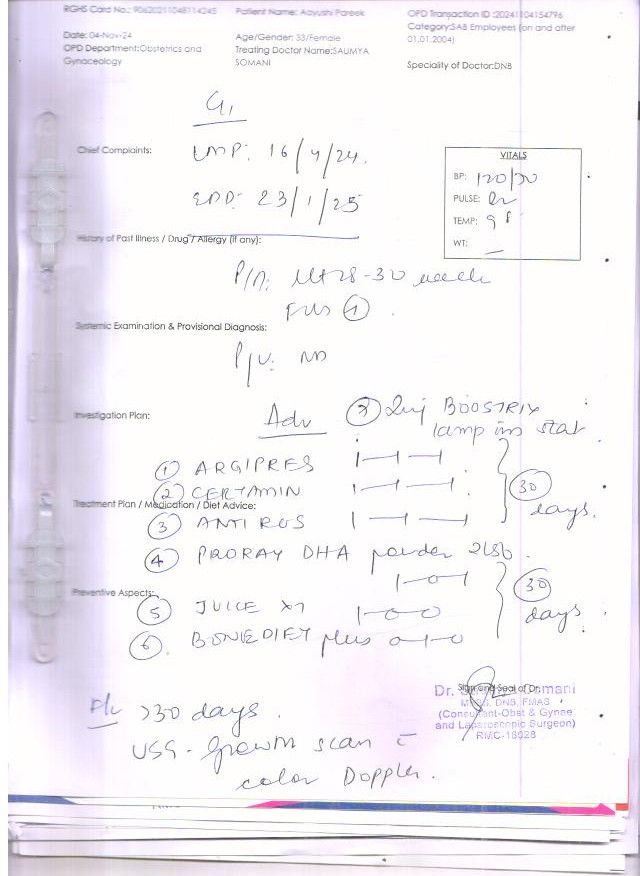 RGHS Card No.: Patient Name: Aayushi Pareek OPD Transaction ID :20241104154796
Category:SAB Employees (on and after 01.01.2004)
Date: 04-Nov-24 Age/Gender: 33/Female
OPD Department:Obstetrics and Gynaecology Treating Doctor Name:SAUMYA SOMANI Speciality of Doctor:DNB
G1
Chief Complaints: LMP: 16/4/24.
EDD: 23/1/25
VITALS
BP: 120/70
PULSE:
TEMP: 98
WT: _
History of Past Illness / Drug / Allergy (if any):
P/A: Ut 28-30 week
FHS
Systemic Examination & Provisional Diagnosis:
P/V: ND
Investigation Plan: Adv Inj BOOSTRIX
1amp im stat
① ARGIPRES 1-1-1
② CERTAMIN 1-1-1 30
Treatment Plan / Medication / Diet Advice: days.
③ ANTI ROS 1-1-1
④ PRORAY DHA powder 2tsb.
1-0-1 30
Preventive Aspects:
⑤ JUICE 1-0-0 days
⑥ BONEDIET plus 0-1-0
Sign and Seal of Dr.
Dr. Somani
MBBS, DNB, FMAS
(Consultant-Obst & Gynne
and Laparoscopic Surgeon)
RMC-18028
>30 days.
USG - Growth scan c
color Doppler.